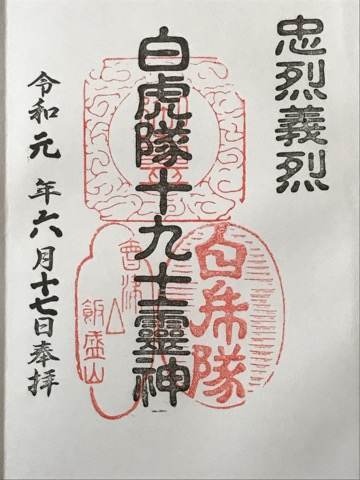 忠烈義烈
白虎隊十九士靈神
白乕隊
會津
飯盛山
令和元年六月十七日奉拝